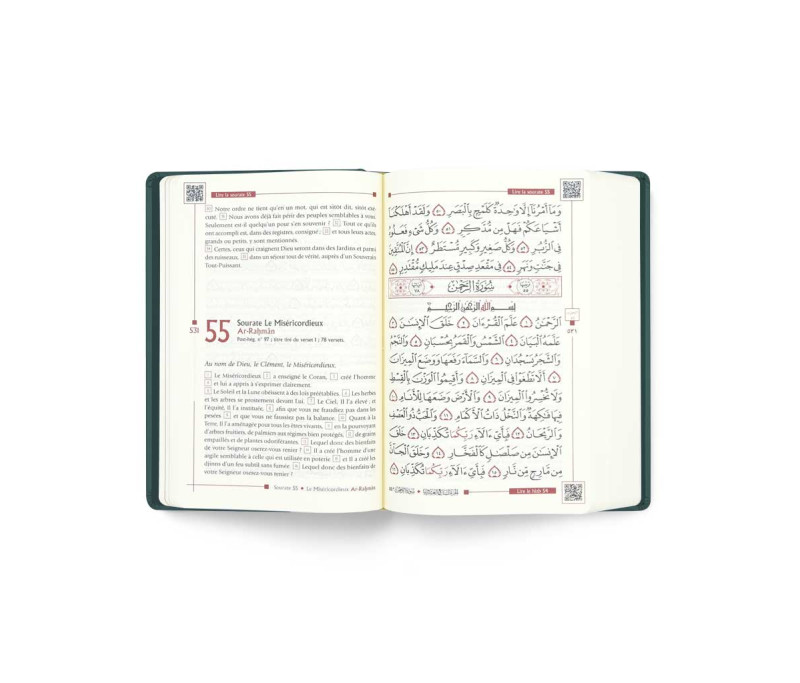 Lire la sourate 55
50 Notre ordre ne qu'en un mot, qui est sitôt dit, sitôt
cuté. 51 Nous avons déjà fait périr des peuples semblables à vous.
Seulement est-il quelqu'un pour s'en souvenir ? 52 Tout ce qu'ils
ont accompli est, dans des registres, consigné ; 53 et tous leurs actes,
grands ou petits, y sont mentionnés.
54 Certes, ceux qui craignent Dieu seront dans des Jardins et parmi
des ruisseaux, 55 dans un séjour tout de vérité, auprès d'un Souverain
Tout-Puissant.
531
55
Sourate Le Miséricordieux
Ar-Raḥmân
Post-hég. n° 97 ; titre tiré du verset 1 ; 78 versets.
Au nom de Dieu, le Clément, le Miséricordieux.
1 Le Miséricordieux 2 a enseigné le Coran, 3 créé l'homme
4 et lui a appris à s'exprimer clairement.
5 Le Soleil et la Lune obéissent à des lois préétablies. 6 Les herbes
et les arbres se prosternent devant Lui. 7 Le Ciel, Il l'a élevé, et
l'équité, Il l'a instituée, 8 afin que vous ne fraudiez pas dans les
pesées 9 et que vous ne faussiez pas la balance. 10 Quant à la
Terre, Il l'a aménagée pour tous les êtres vivants, 11 en la pourvoyant
d'arbres fruitiers, de palmiers aux régimes bien protégés, 12 de grains
empaillés et de plantes odoriférantes. 13 Lequel donc des bienfaits
de votre Seigneur oserez-vous renier ? 14 Il a créé l'homme d'une
argile semblable à celle qui est utilisée en poterie 15 et Il a créé les
djinns d'un feu subtil sans fumée. 16 Lequel donc des bienfaits de
votre Seigneur oserez-vous renier ?
Sourate 55 • Le Miséricordieux Ar-Raḥmân
Lire la sourate 55
وَمَآ أَمْرُنَآ إِلَّا وَٰحِدَةٌ كَلَمْحٍۭ بِٱلْبَصَرِ ٥٠ وَلَقَدْ أَهْلَكْنَآ
أَشْيَاعَكُمْ فَهَلْ مِن مُّدَّكِرٍ ٥١ وَكُلُّ شَىْءٍ فَعَلُوهُ
فِى ٱلزُّبُرِ ٥٢ وَكُلُّ صَغِيرٍ وَكَبِيرٍ مُّسْتَطَرٌ ٥٣ إِنَّ ٱلْمُتَّقِينَ
فِى جَنَّٰتٍ وَنَهَرٍ ٥٤ فِى مَقْعَدِ صِدْقٍ عِندَ مَلِيكٍ مُّقْتَدِرٍۭ ٥٥
سُورَةُ الرَّحْمَٰن
بِسْمِ ٱللَّهِ ٱلرَّحْمَٰنِ ٱلرَّحِيمِ
ٱلرَّحْمَٰنُ ١ عَلَّمَ ٱلْقُرْءَانَ ٢ خَلَقَ ٱلْإِنسَٰنَ ٣
عَلَّمَهُ ٱلْبَيَانَ ٤ ٱلشَّمْسُ وَٱلْقَمَرُ بِحُسْبَانٍ ٥ وَٱلنَّجْمُ
وَٱلشَّجَرُ يَسْجُدَانِ ٦ وَٱلسَّمَآءَ رَفَعَهَا وَوَضَعَ ٱلْمِيزَانَ
٧ أَلَّا تَطْغَوْا۟ فِى ٱلْمِيزَانِ ٨ وَأَقِيمُوا۟ ٱلْوَزْنَ بِٱلْقِسْطِ
وَلَا تُخْسِرُوا۟ ٱلْمِيزَانَ ٩ وَٱلْأَرْضَ وَضَعَهَا لِلْأَنَامِ ١٠
فِيهَا فَٰكِهَةٌ وَٱلنَّخْلُ ذَاتُ ٱلْأَكْمَامِ ١١ وَٱلْحَبُّ ذُو ٱلْعَصْفِ
وَٱلرَّيْحَانُ ١٢ فَبِأَىِّ ءَالَآءِ رَبِّكُمَا تُكَذِّبَانِ ١٣ خَلَقَ
ٱلْإِنسَٰنَ مِن صَلْصَٰلٍ كَٱلْفَخَّارِ ١٤ وَخَلَقَ ٱلْجَآنَّ
مِن مَّارِجٍ مِّن نَّارٍ ١٥ فَبِأَىِّ ءَالَآءِ رَبِّكُمَا تُكَذِّبَانِ ١٦
٥٣١
Lire le hizb 54